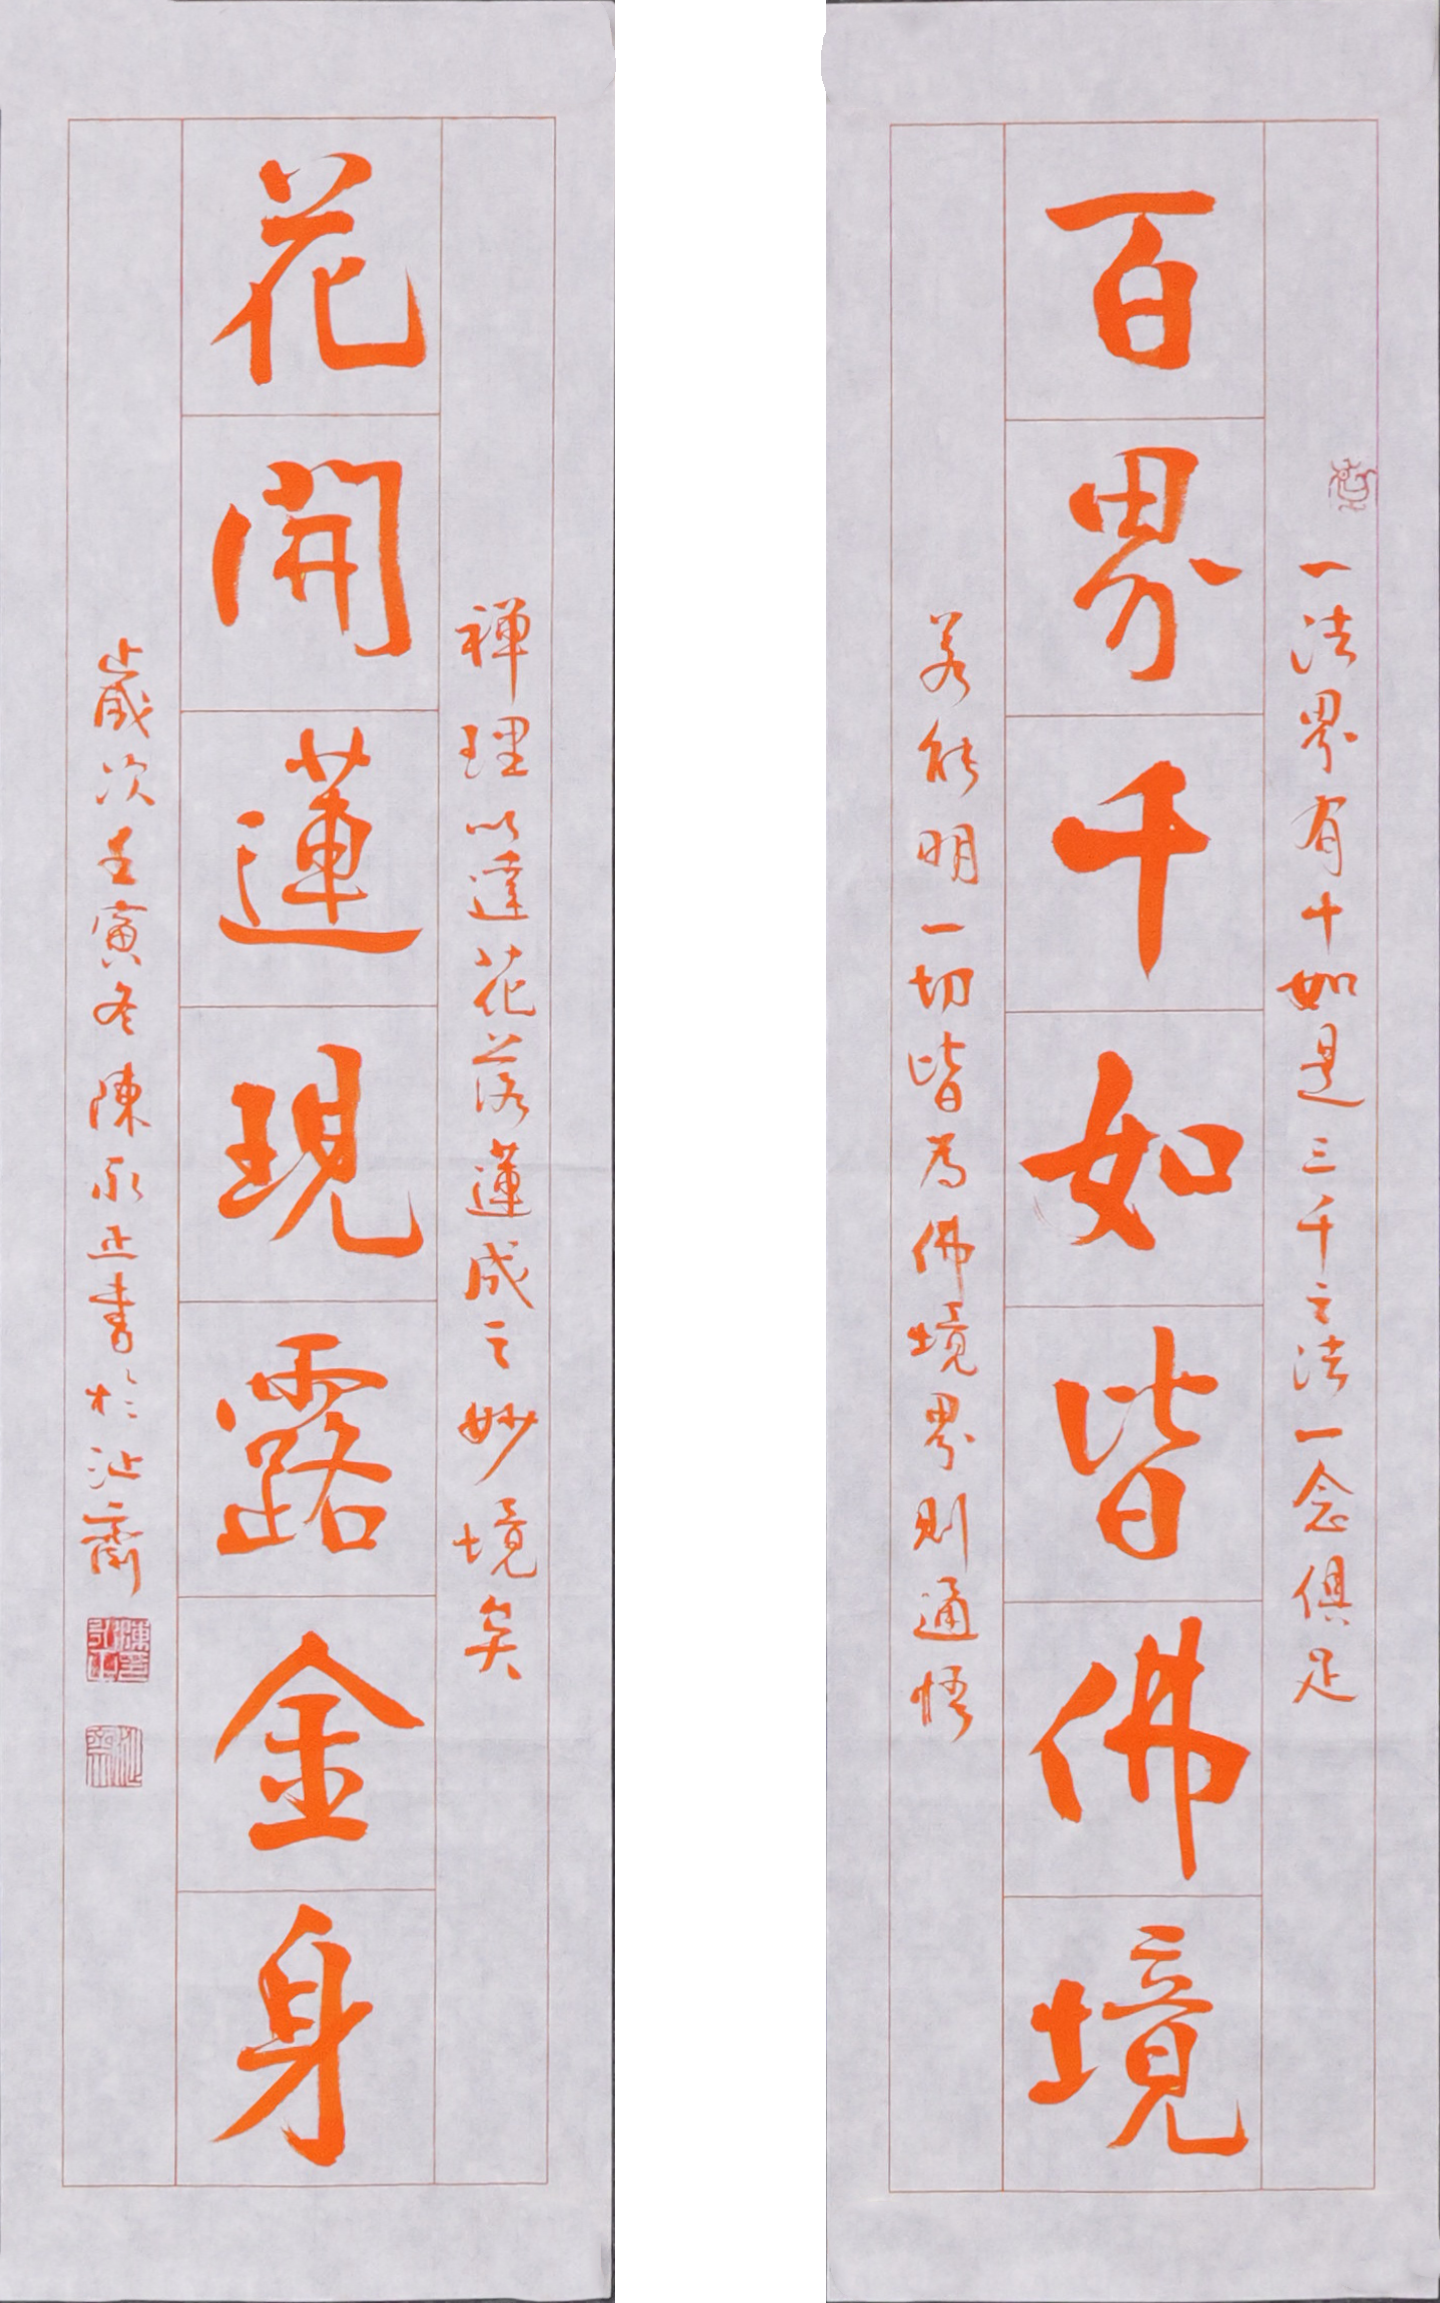 百界千如皆佛境
一法界有十如是三千之法一念俱足
若能明一切皆為佛境界則通悟
花開蓮現露金身
禪理以達花落蓮成之妙境矣
歲次壬寅冬陳永正書於沚齋
陳永正印
沚齋